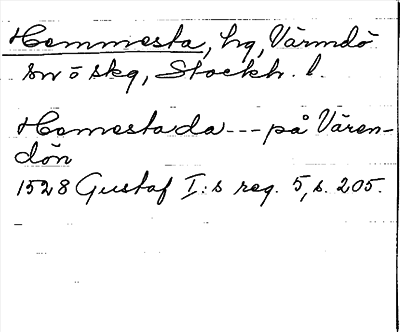 Hemmesta, hg, Värmdö
sn ö skg, Stockh. l.
Hemestada --- på Vären-
dön
1528 Gustaf I:s reg. 5, s. 205.